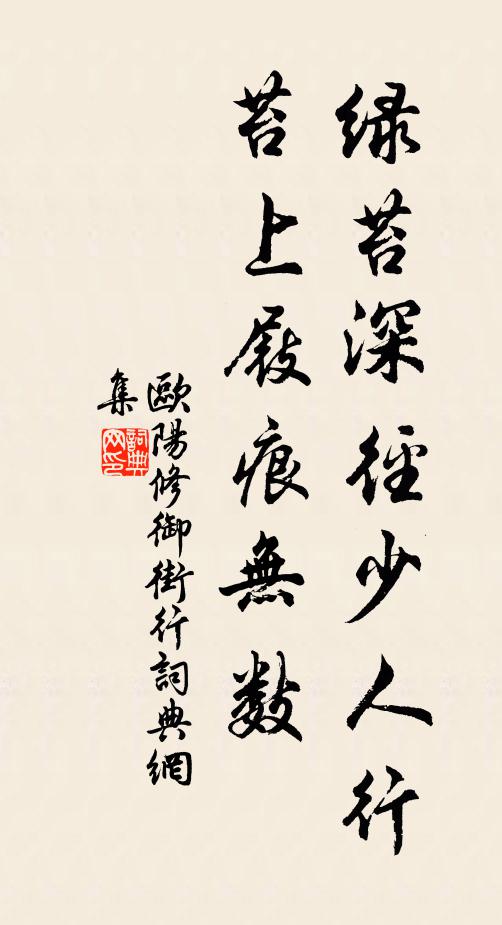 緑苔深徑少人行
苔上屐痕無數
歐陽修御街行詞典網
集
詞典网印